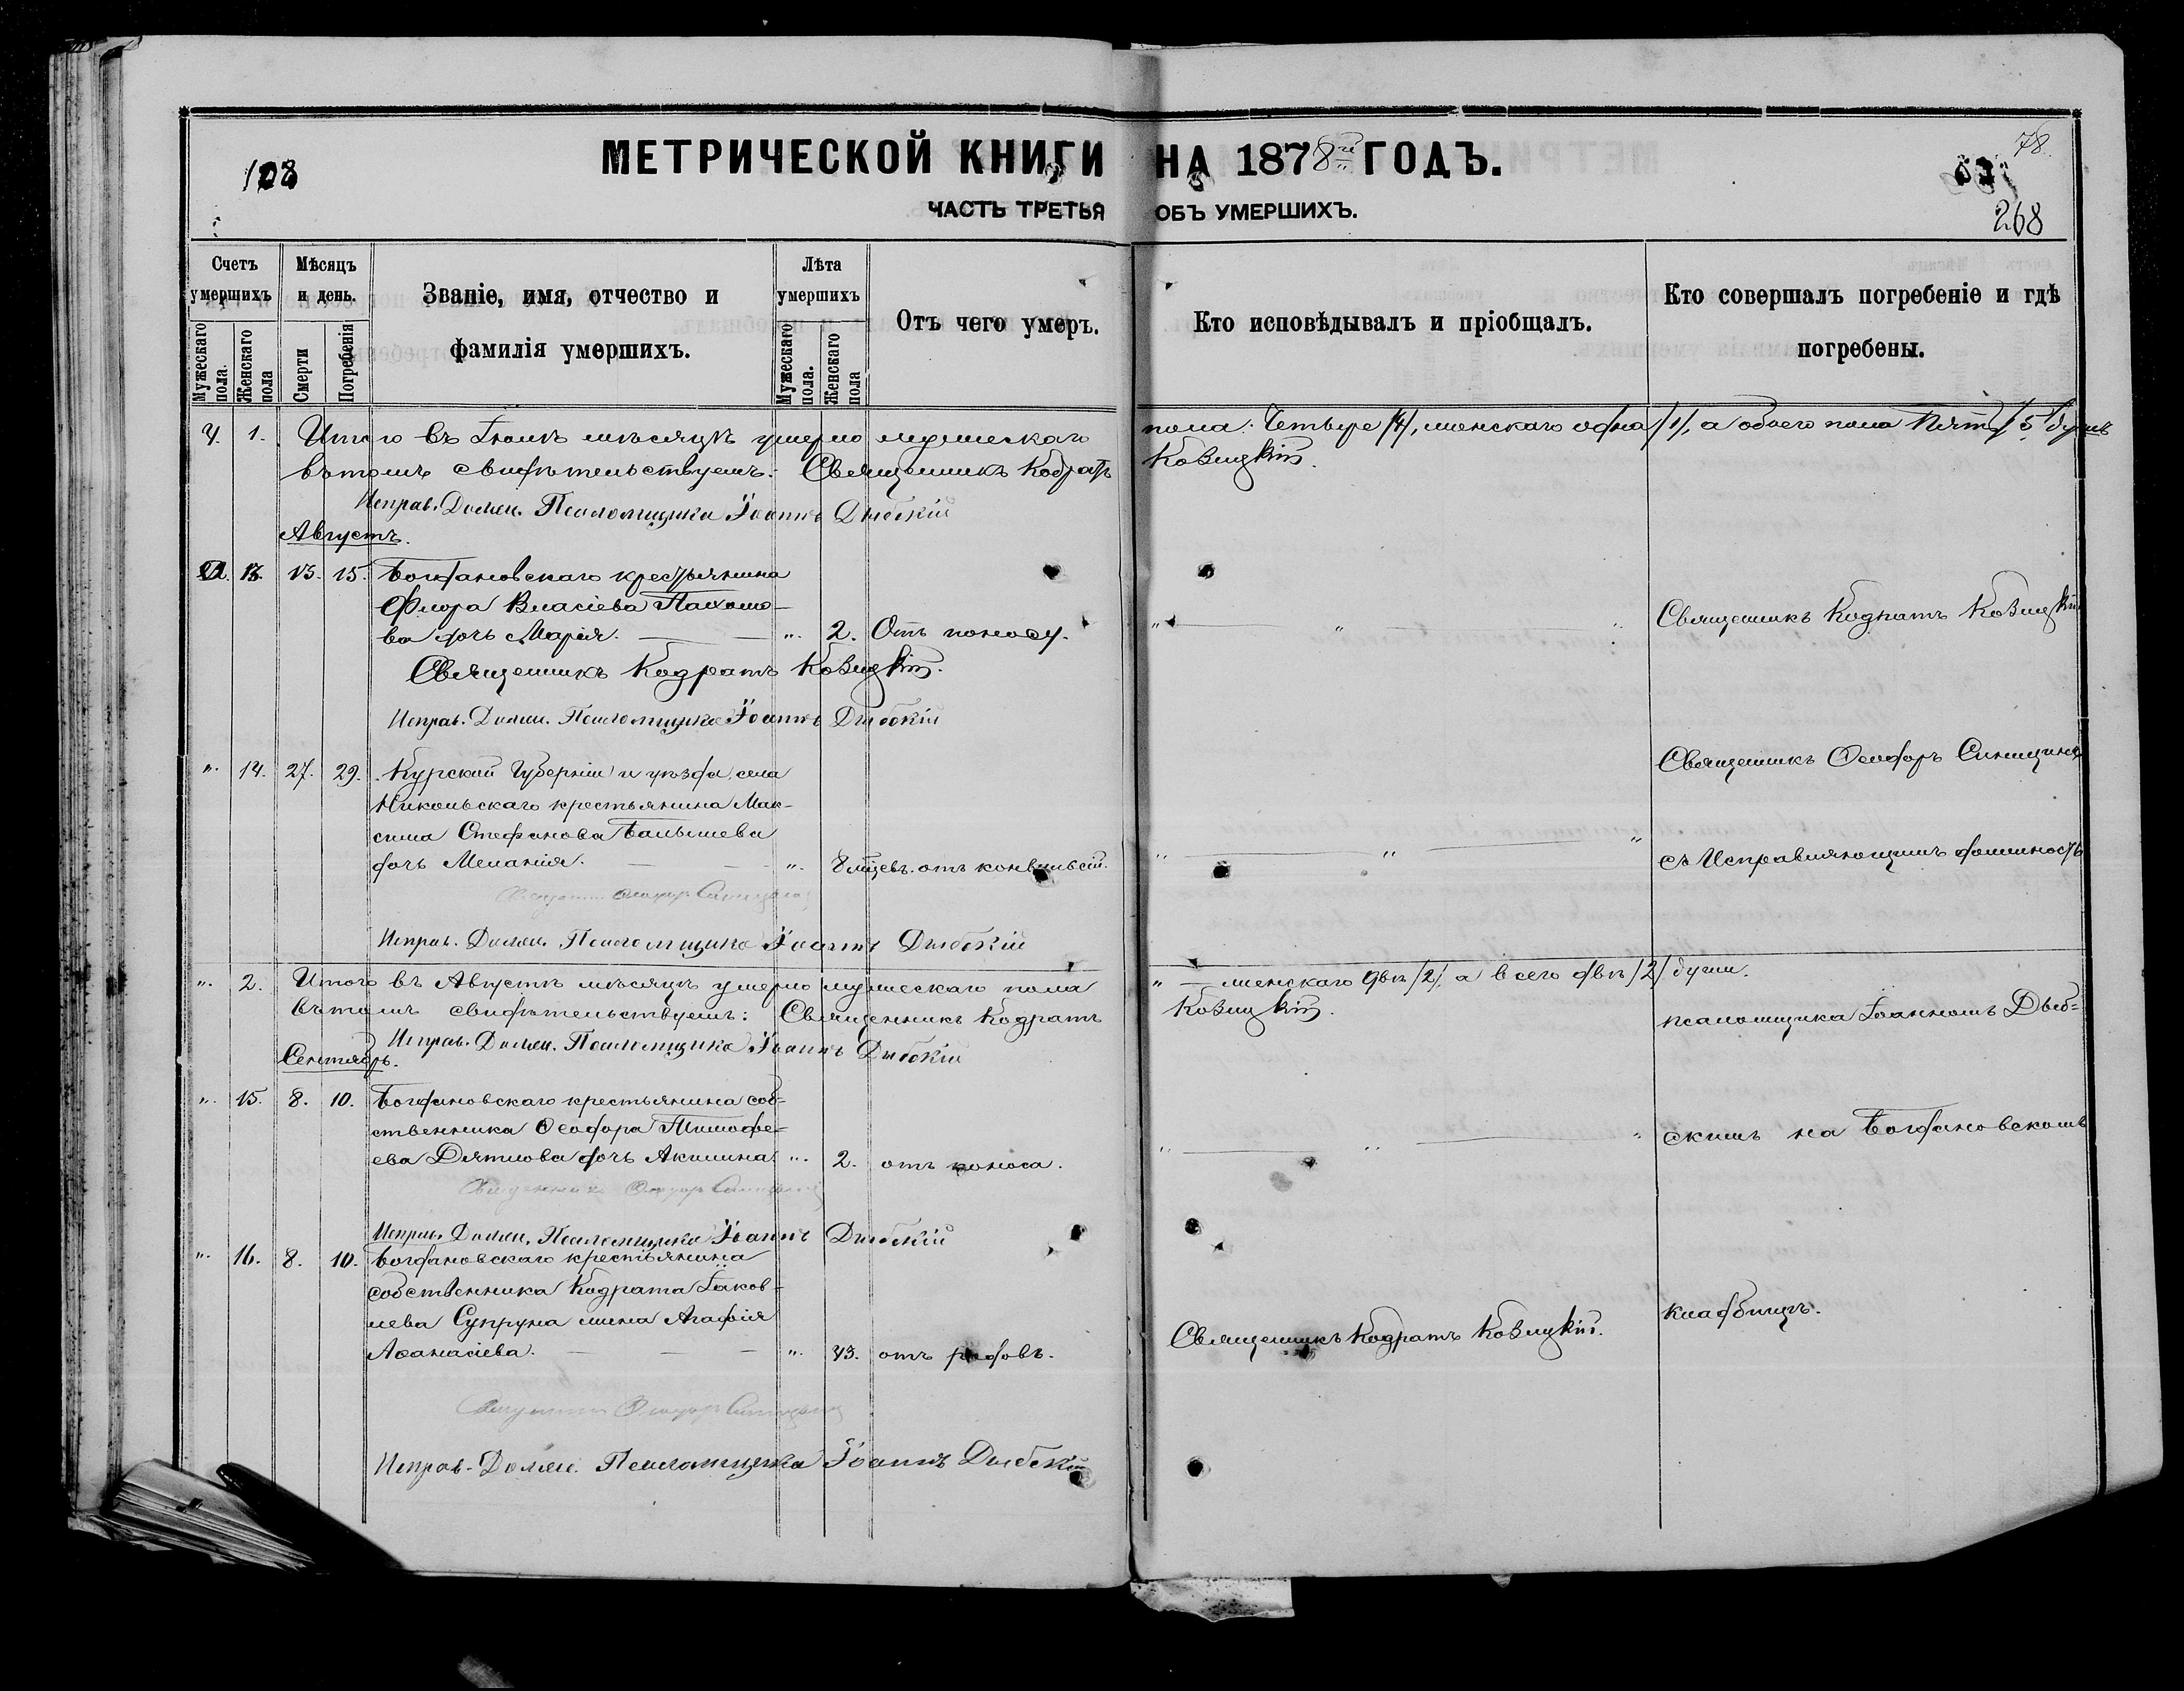 МЕТРИЧЕСКОЙ КНИГИ НА 1878й ГОДЪ.
78.
268
ЧАСТЬ ТРЕТЬЯ ОБЪ УМЕРШИХЪ.
Счетъ умершихъ
Мужескаго пола.
Женскаго пола
Мѣсяцъ и день.
Смерти
Погребенія
Званіе, имя, отчество и фамилія умершихъ.
Лѣта умершихъ
Мужескаго пола.
Женскаго пола
Отъ чего умеръ.
Кто исповѣдывалъ и пріобщалъ.
Кто совершалъ погребеніе и гдѣ погребены.
4. 1. Итого въ Іюлѣ мѣсяцѣ умерло мужескаго пола: Четыре /4/, женскаго одна /1/, а обоего пола Пять /5/ душъ
въ томъ свидѣтельствуемъ: Священникъ Кодратъ Ковицкій.
Исправ. Должн. Псаломщика Іоаннъ Дыбскій
Августъ.
13. 13. 15. Богдановскаго крестьянина
Флора Власіева Пахомо-
ва дочь Марія. — „. 2. Отъ поносу. „ „ „
Священникъ Кодратъ Ковицкій
Священникъ Кодратъ Ковицкій.
Исправ. Должн. Псаломщика Іоаннъ Дыбскій
„. 14. 27. 29. Курской Губерніи и уѣзда, села
Никольскаго крестьянина Мак-
сима Стефанова Балышева
дочь Меланія. — „. 8 мѣсяц. отъ конвульсій. „ „ „
Священникъ Ѳеодоръ Синицинъ
съ Исправляющимъ должность
Исправ. Должн. Псаломщика Іоаннъ Дыбскій
„. 2. Итого въ Августѣ мѣсяцѣ умерло мужескаго пола „ — женскаго двѣ /2/, а всего двѣ /2/ души.
въ томъ свидѣтельствуемъ: Священникъ Кодратъ Ковицкій.
псаломщика Іоанномъ Дыб-
Исправ. Должн. Псаломщика Іоаннъ Дыбскій
Сентябрь.
„. 15. 8. 10. Богдановскаго крестьянина соб-
ственника Ѳеодора Тимофе-
ева Дятлова дочь Акилина. „. 2. отъ поноса. „ „ „
скимъ на Богдановскомъ
Исправ. Должн. Псаломщика Іоаннъ Дыбскій
„. 16. 8. 10. Богдановскаго крестьянина
собственника Кодрата Іаков-
лева Супруна жена Агафія
Аѳанасіева. — „. 43. отъ родовъ. Священникъ Кодратъ Ковицкій.
кладбищѣ.
Исправ. Должн. Псаломщика Іоаннъ Дыбскій